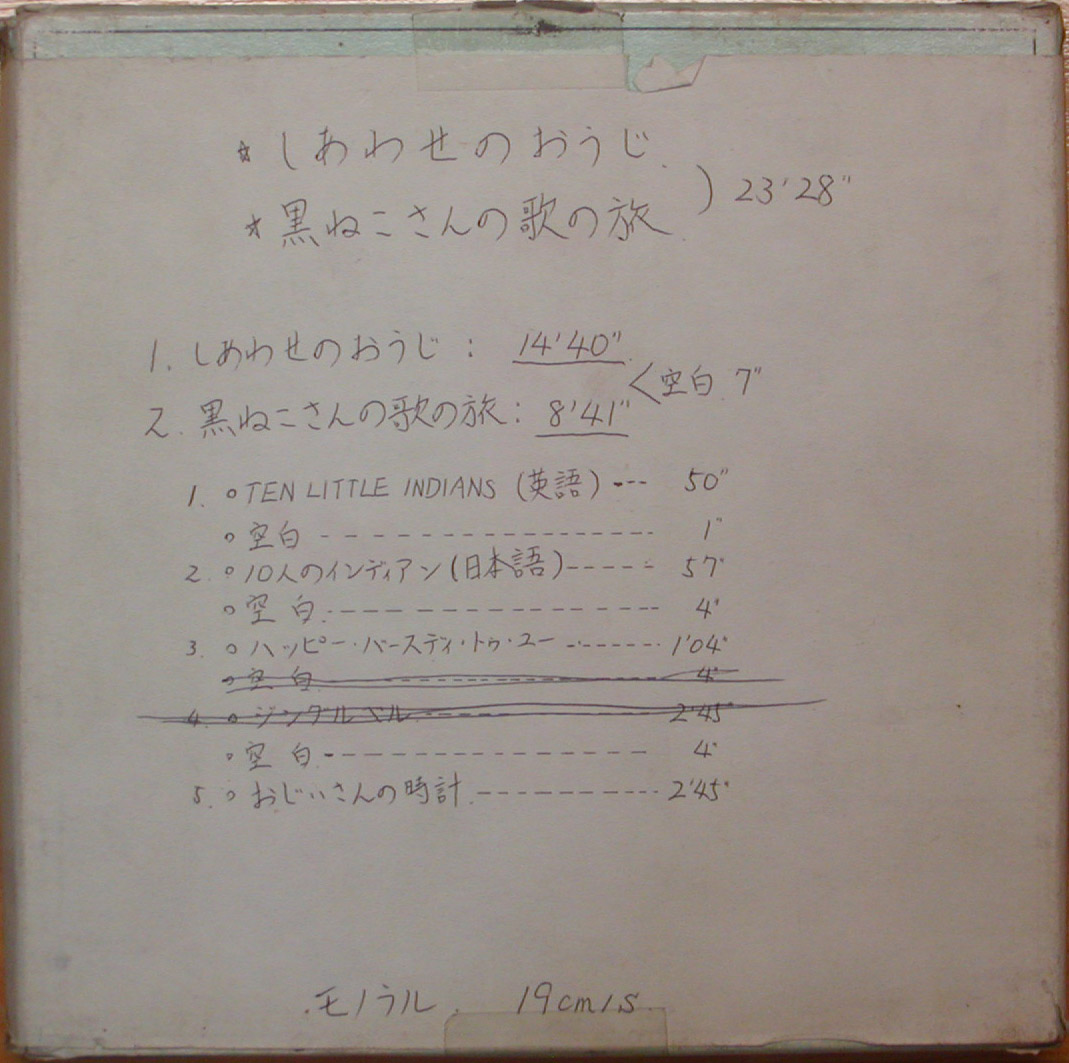 ☆ しあわせのおうじ
☆ 黒ねこさんの歌の旅 ) 23'28"
1. しあわせのおうじ : 14'40"
< 空白 7"
2. 黒ねこさんの歌の旅 : 8'41"
1. ○ TEN LITTLE INDIANS (英語) --- 50"
○ 空白 ---------------- 1"
2. ○ 10人のインディアン (日本語) ----- 57"
○ 空白 ---------------- 4"
3. ○ ハッピー・バースディ・トゥ・ユー ------- 1'04"
○ 空白 ---------------- 4"
4. ○ ジングルベル ------------ 2'45"
○ 空白 ---------------- 4"
5. ○ おじいさんの時計 ----------- 2'45"
モノラル 19cm/s